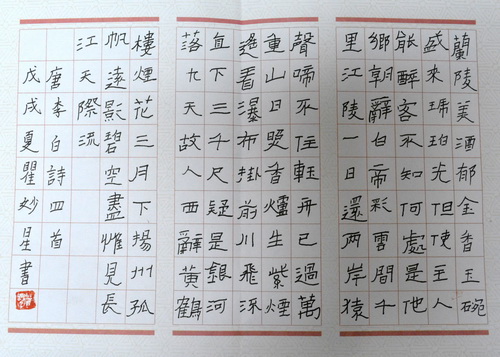 蘭陵美酒郁金香玉碗
盛來琥珀光但使主人
能醉客不知何處是他
鄉朝辭白帝彩雲間千
里江陵一日還兩岸猿
聲啼不住輕舟已過萬
重山日照香爐生紫煙
遙看瀑布掛前川飛流
直下三千尺疑是銀河
落九天故人西辭黃鶴
樓煙花三月下揚州孤
帆遠影碧空盡惟見長
江天際流
唐李白詩四首
戊戌夏瞿妙星書